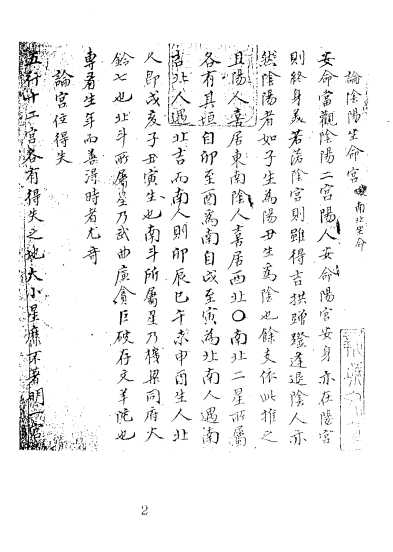 論陰陽生命宮 南北生命
安命當觀陰陽二宮陽人安命陽宮安身亦在陽宮
則終身美若落陰宮則雖得吉拱蹭蹬退陰人亦
然陰陽者如子生為陽丑生為陰也餘支依此推之
且陽人喜居東南陰人喜居西北〇南北二星所屬
各有其垣自卯至酉為南自戌至寅為北南人遇南
吉北人遇北吉而南人則卯辰巳午未申酉生人北
人即戌亥子丑寅生也南斗所屬星乃機梁同府火
鈴七也北斗所屬星乃武曲廉貪巨破存文羊陀也
專看生年而善得時者尤奇
論宮位得失
五行十二宮各有得失之地大小星
不著明一宮
2